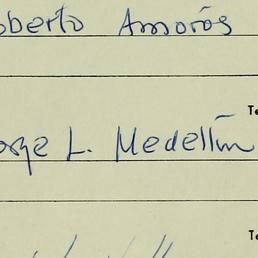 oberto Amorós
Te
orge L. Medellín
Te